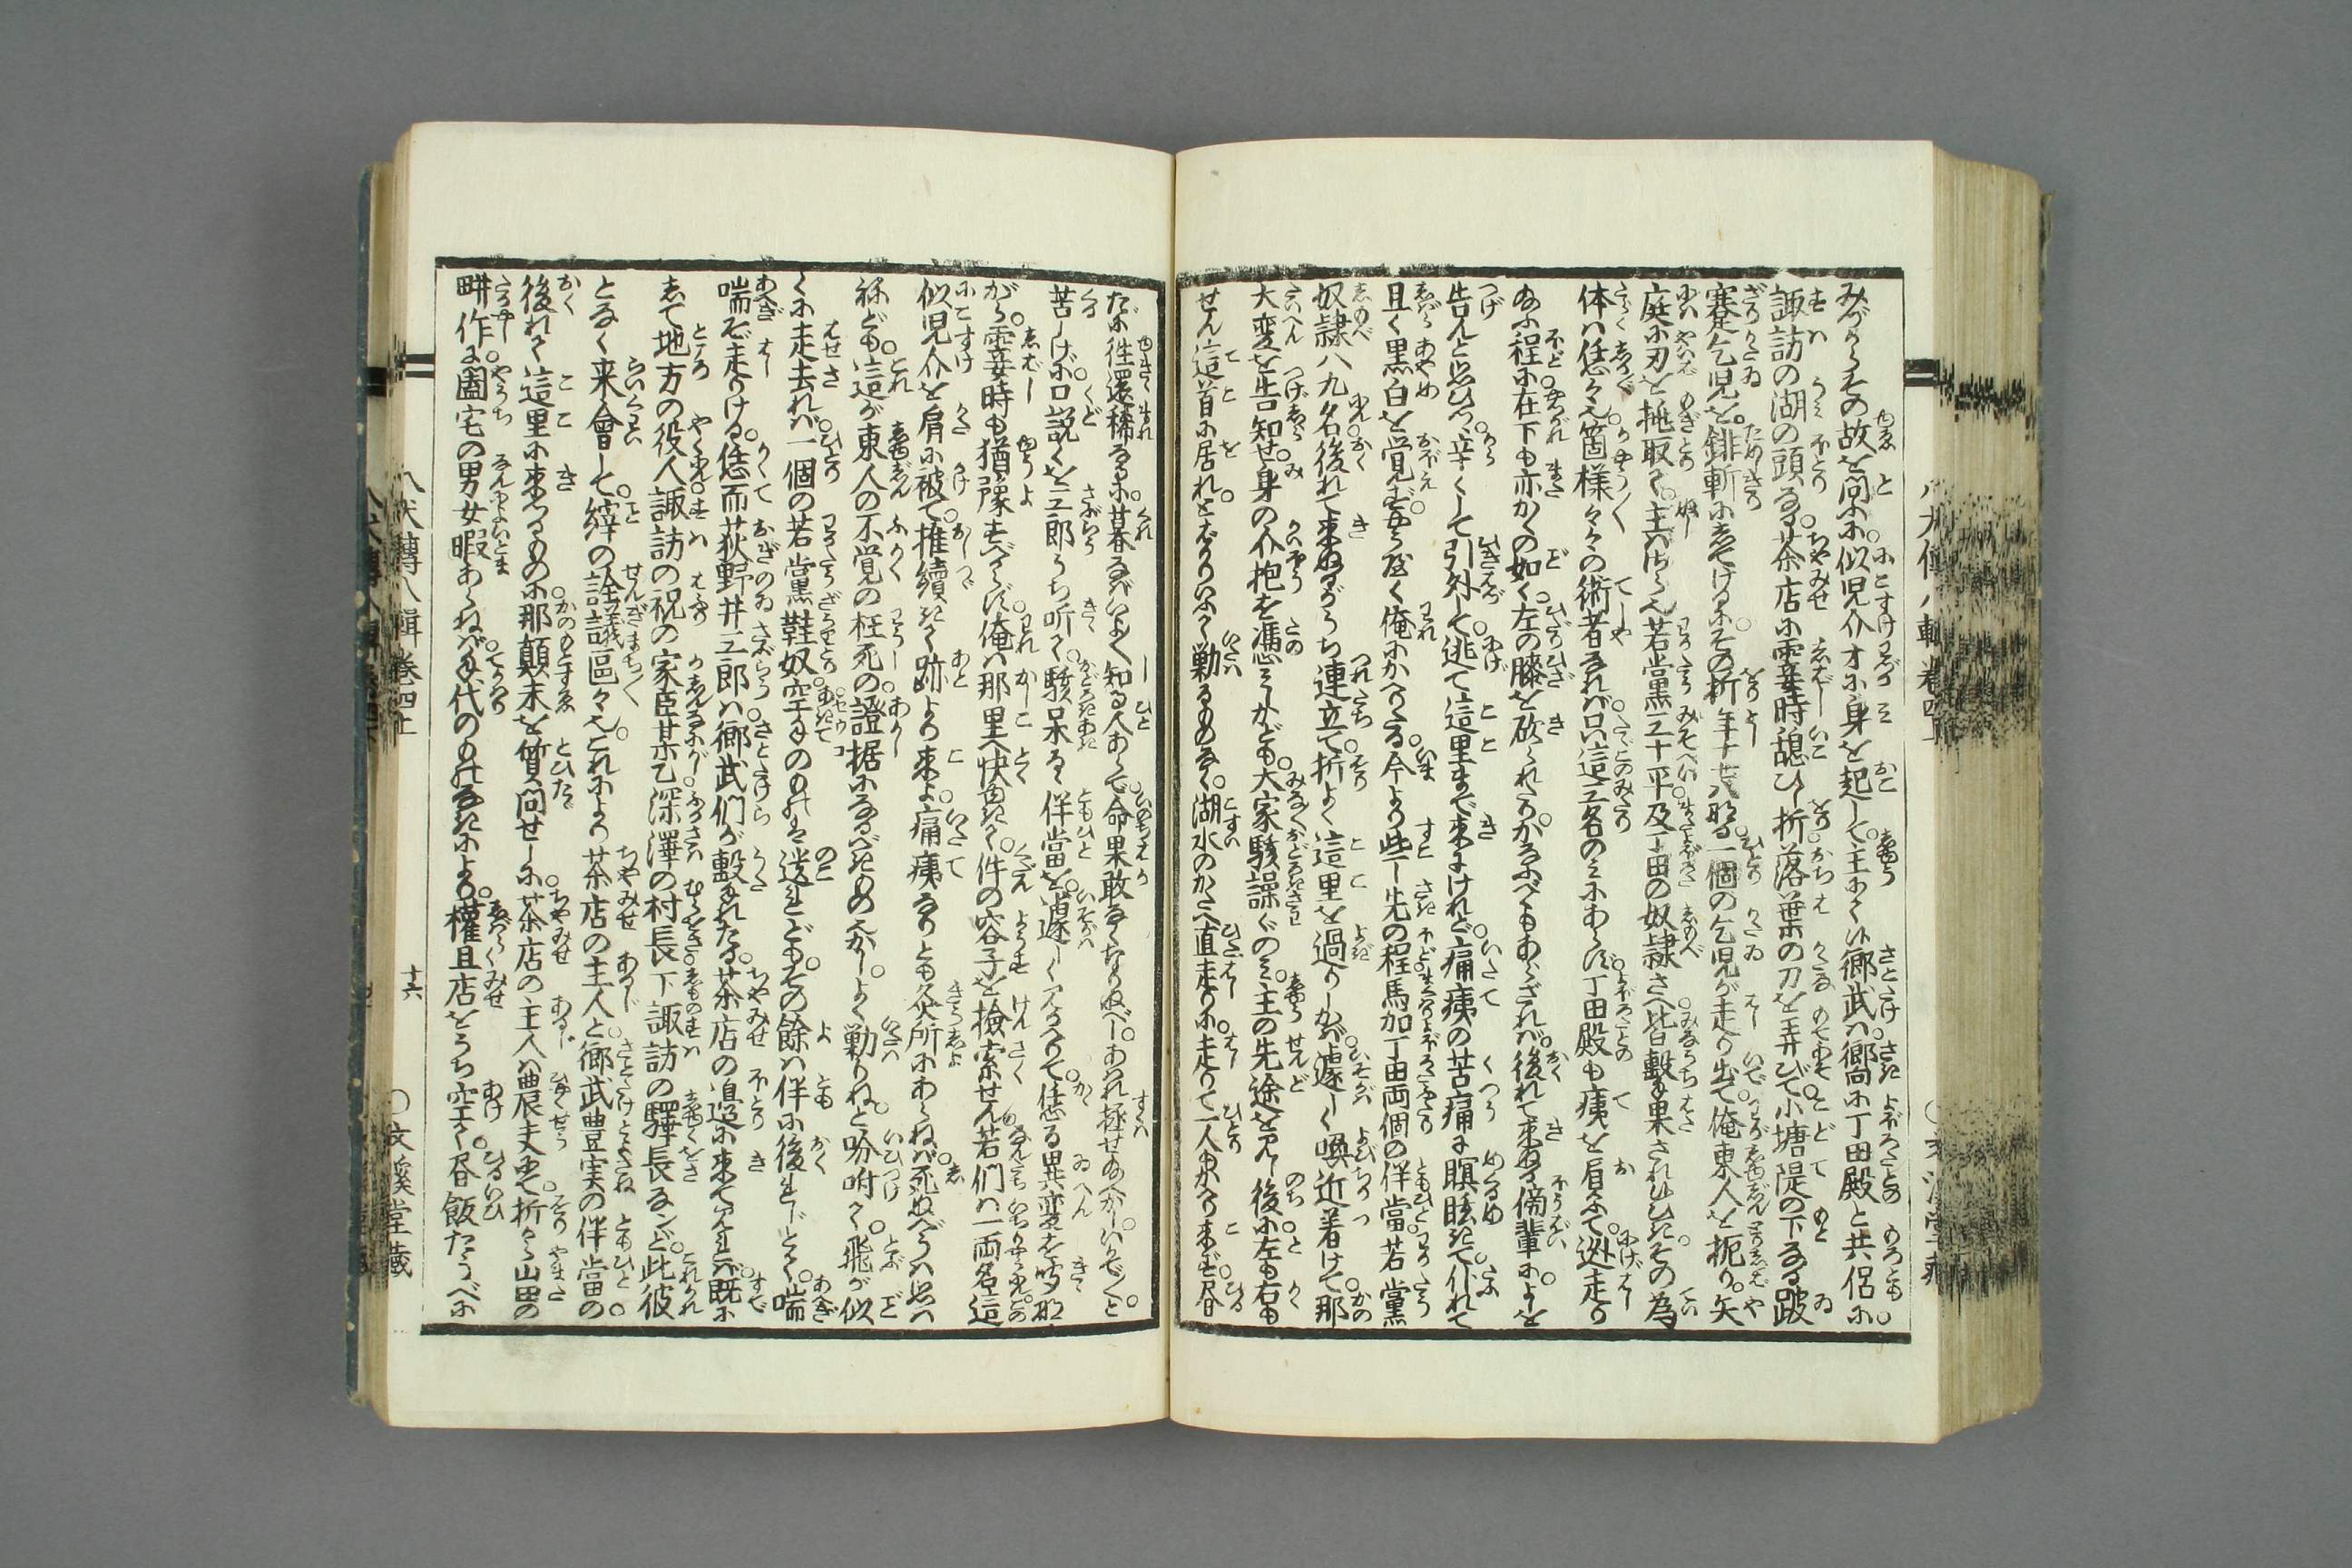 みづから其の故を問ふに似児介才に身を起して主にく候郷武は郷向に丁田殿と共侶に
諏訪の湖の頭なる茶店に霎時憩ひし折落葉の刀を弄びて小塘隄の下なる跛
蹇乞児を鋳斬にしてけるにその折年十七八なる一個の乞児が走り出て俺東人を扼り矢
庭に刃を拖取て主ハさら也若黨三十平及丁田の奴隷さへ皆撃果されしひきその為
体ハ恁々也箇様々々の術者なれバ只這三名のミにあらず丁田殿も痍を肩ふて迯走り
ふ程に在下も亦かくの如く左の膝を砍られたりかなふべもあらざれバ後れて来ぬる傍輩によしを
告んと思ひつ辛くして引外して逃て這里まで来にけれど痛痍の苦痛に瞑眩きて仆れて
且く黒白を覚ず云云と俺にかへる今より些し先の程馬加丁田両個の伴當若黨
奴隷八九名後れて来ぬるがうち連立て折よく這里を過りしかバ遽しく喚近着けて那
大変を告知せ身の介抱を憑ミしかども大家駭譟ぐのミ主の先途を見ん後に左も右も
せん這首に居れとばかりいひて勦るものなく湖水のかたへ直走りに走りて一人もかへり来ず昼
だに徃還稀なるに暮なバいよよ知る人あらで命果敢なくなりぬべしあはれ拯せ給へかしいかでかと
苦しげに口説くを三郎うち听て駭き呆るる伴當を遽しく見かへりて恁る異変を等閑
がら霎時も猶豫すべからず俺ハ那里へ快ゆきて件の容子を撿索せん若們ハ一両名這
似児介を肩に被て推續きて跡より来よ痛痍なりとも灸所にあらねバ死ぬべうハ思ハ
ねども這が東人の不覚の枉死の證据になるべきもの也かしよく勦りねと吩咐て飛が似
くに走去れバ一個の若黨鞋奴空手のものハ迭まどもその餘ハ伴に後まじとて喘
喘ぞ走りける恁而荻野井三郎ハ郷武們が毄れたる茶店の邉に来て見まバ既に
して地方の役人諏訪の祝の家臣某乙深澤の村長下諏訪の驛長なンど此彼
となく来會して縡の詮議區々也これにより茶店の主人と郷武豊実の伴當の
後れて這里に来つるものに那顛末を質問せしに茶店の主人ハ農夫にて折から山田の
畊作に闔宅の男女暇あらねバ手代のものなきにより權且店をうち空て昼飯たうべに
八犬傳八輯巻四上
十六
〇文溪堂藏